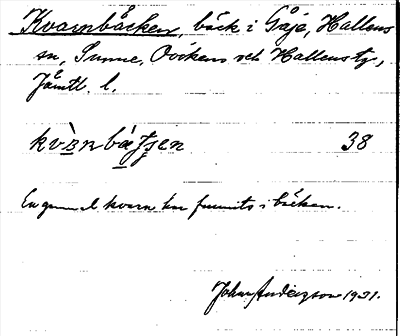 Kvarnbäcken, bäck i Gåje, Hallens
sn, Sunne, Ovikens och Hallens tg,
Jämtl. l.
kvànbæʃʃen 38
En gammal kvarn har funnits i bäcken.
Johan Anderzson 1931.